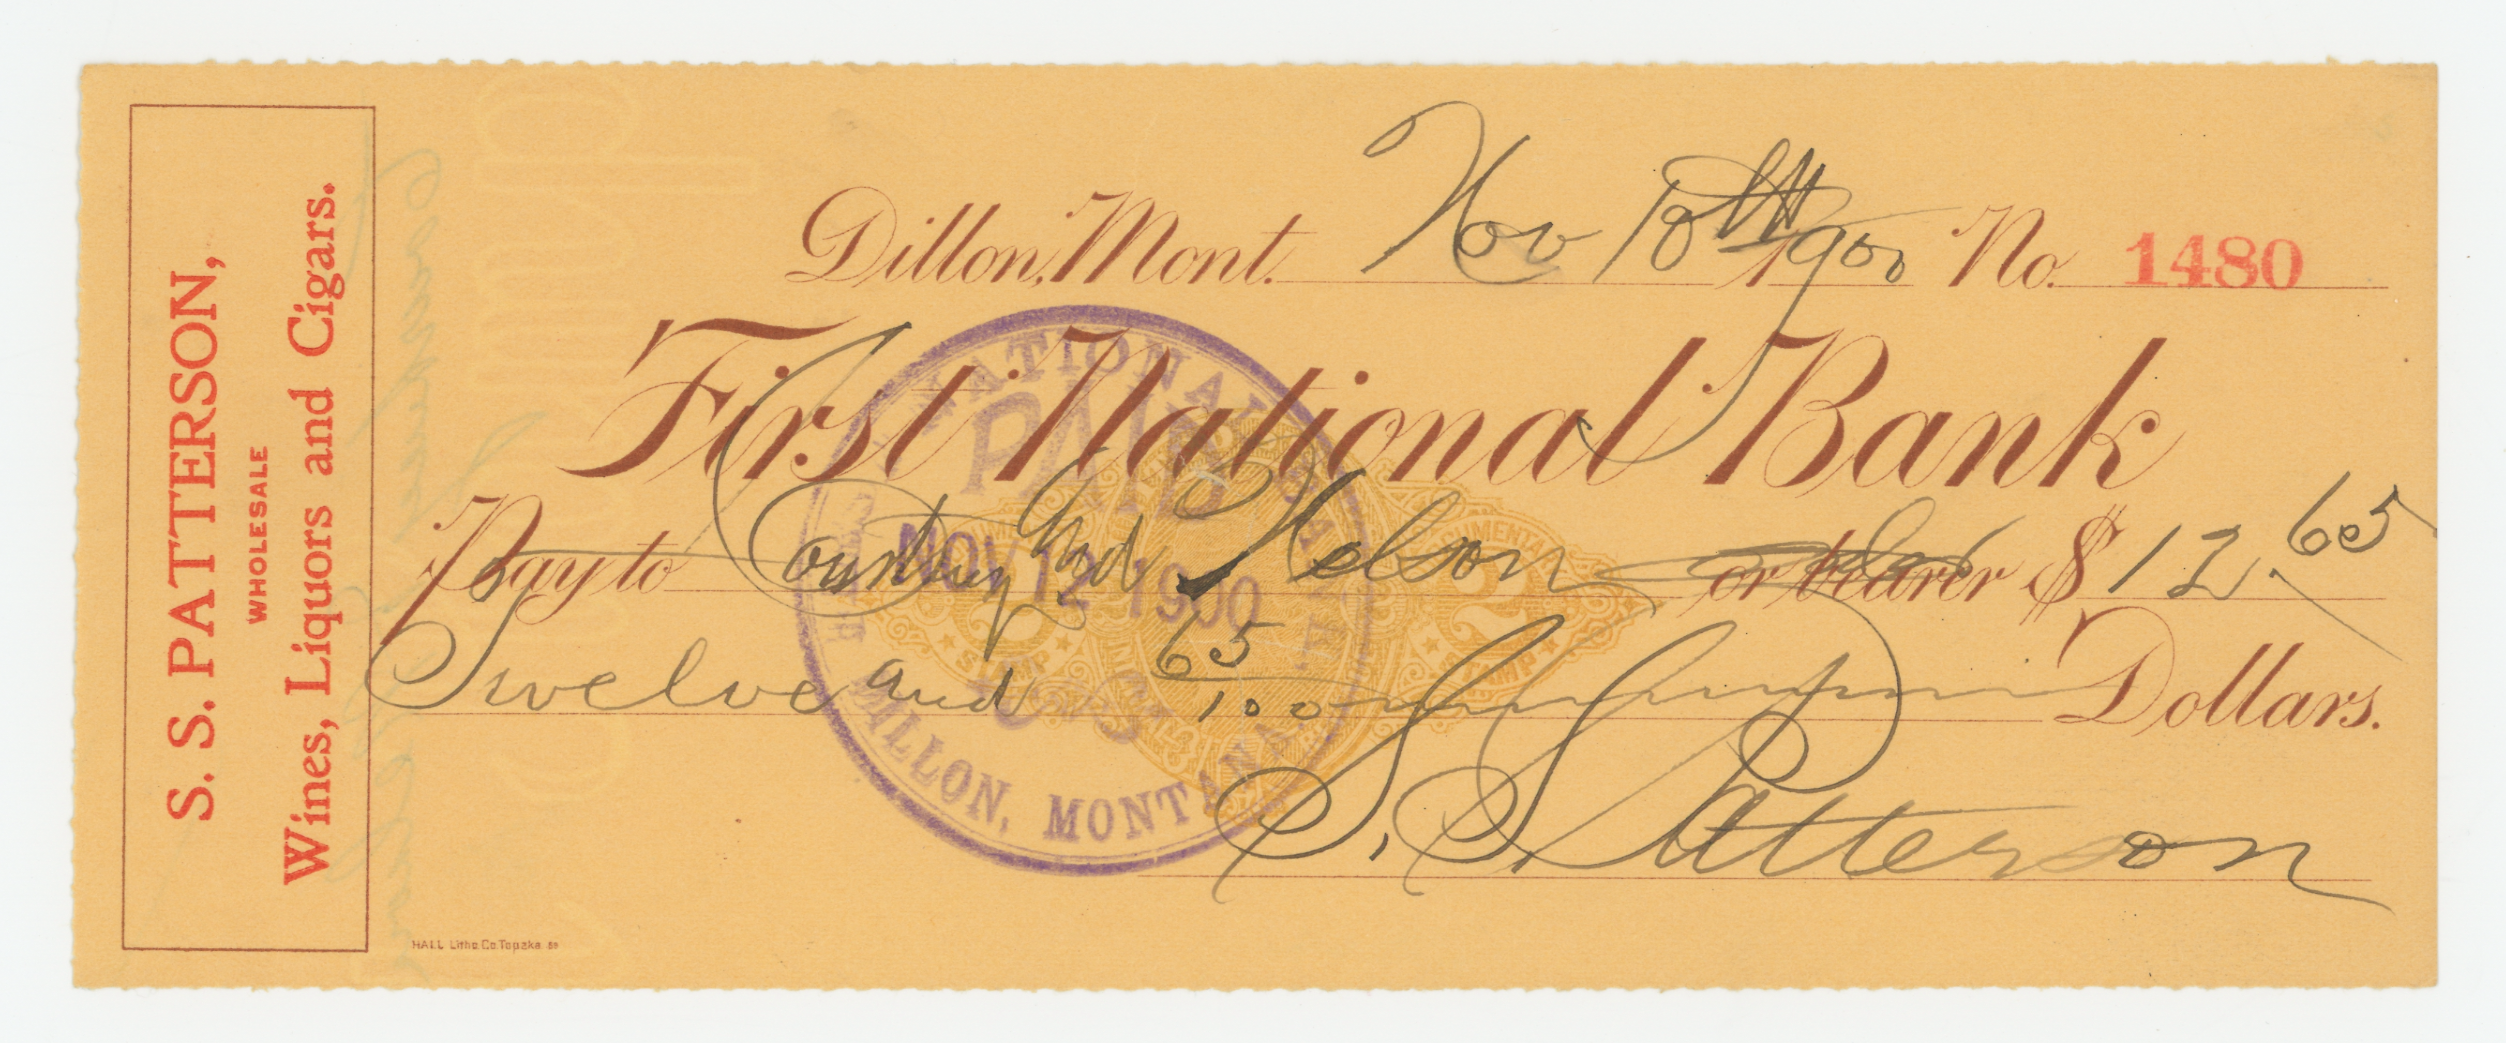 S. S. PATTERSON,
WHOLESALE
Wines, Liquors and Cigars.
Dillon, Mont. Nov 10th 1900 No. 1480
First National Bank
Pay to and Nelson or bearer $12.65
Twelve and 65/100 Dollars.
S. S. Patterson
NATIONAL BANK
PAID
NOV 12 1900
DILLON, MONTANA
DOCUMENTARY
2 2
STAMP
HALL Litho. Co. Topeka